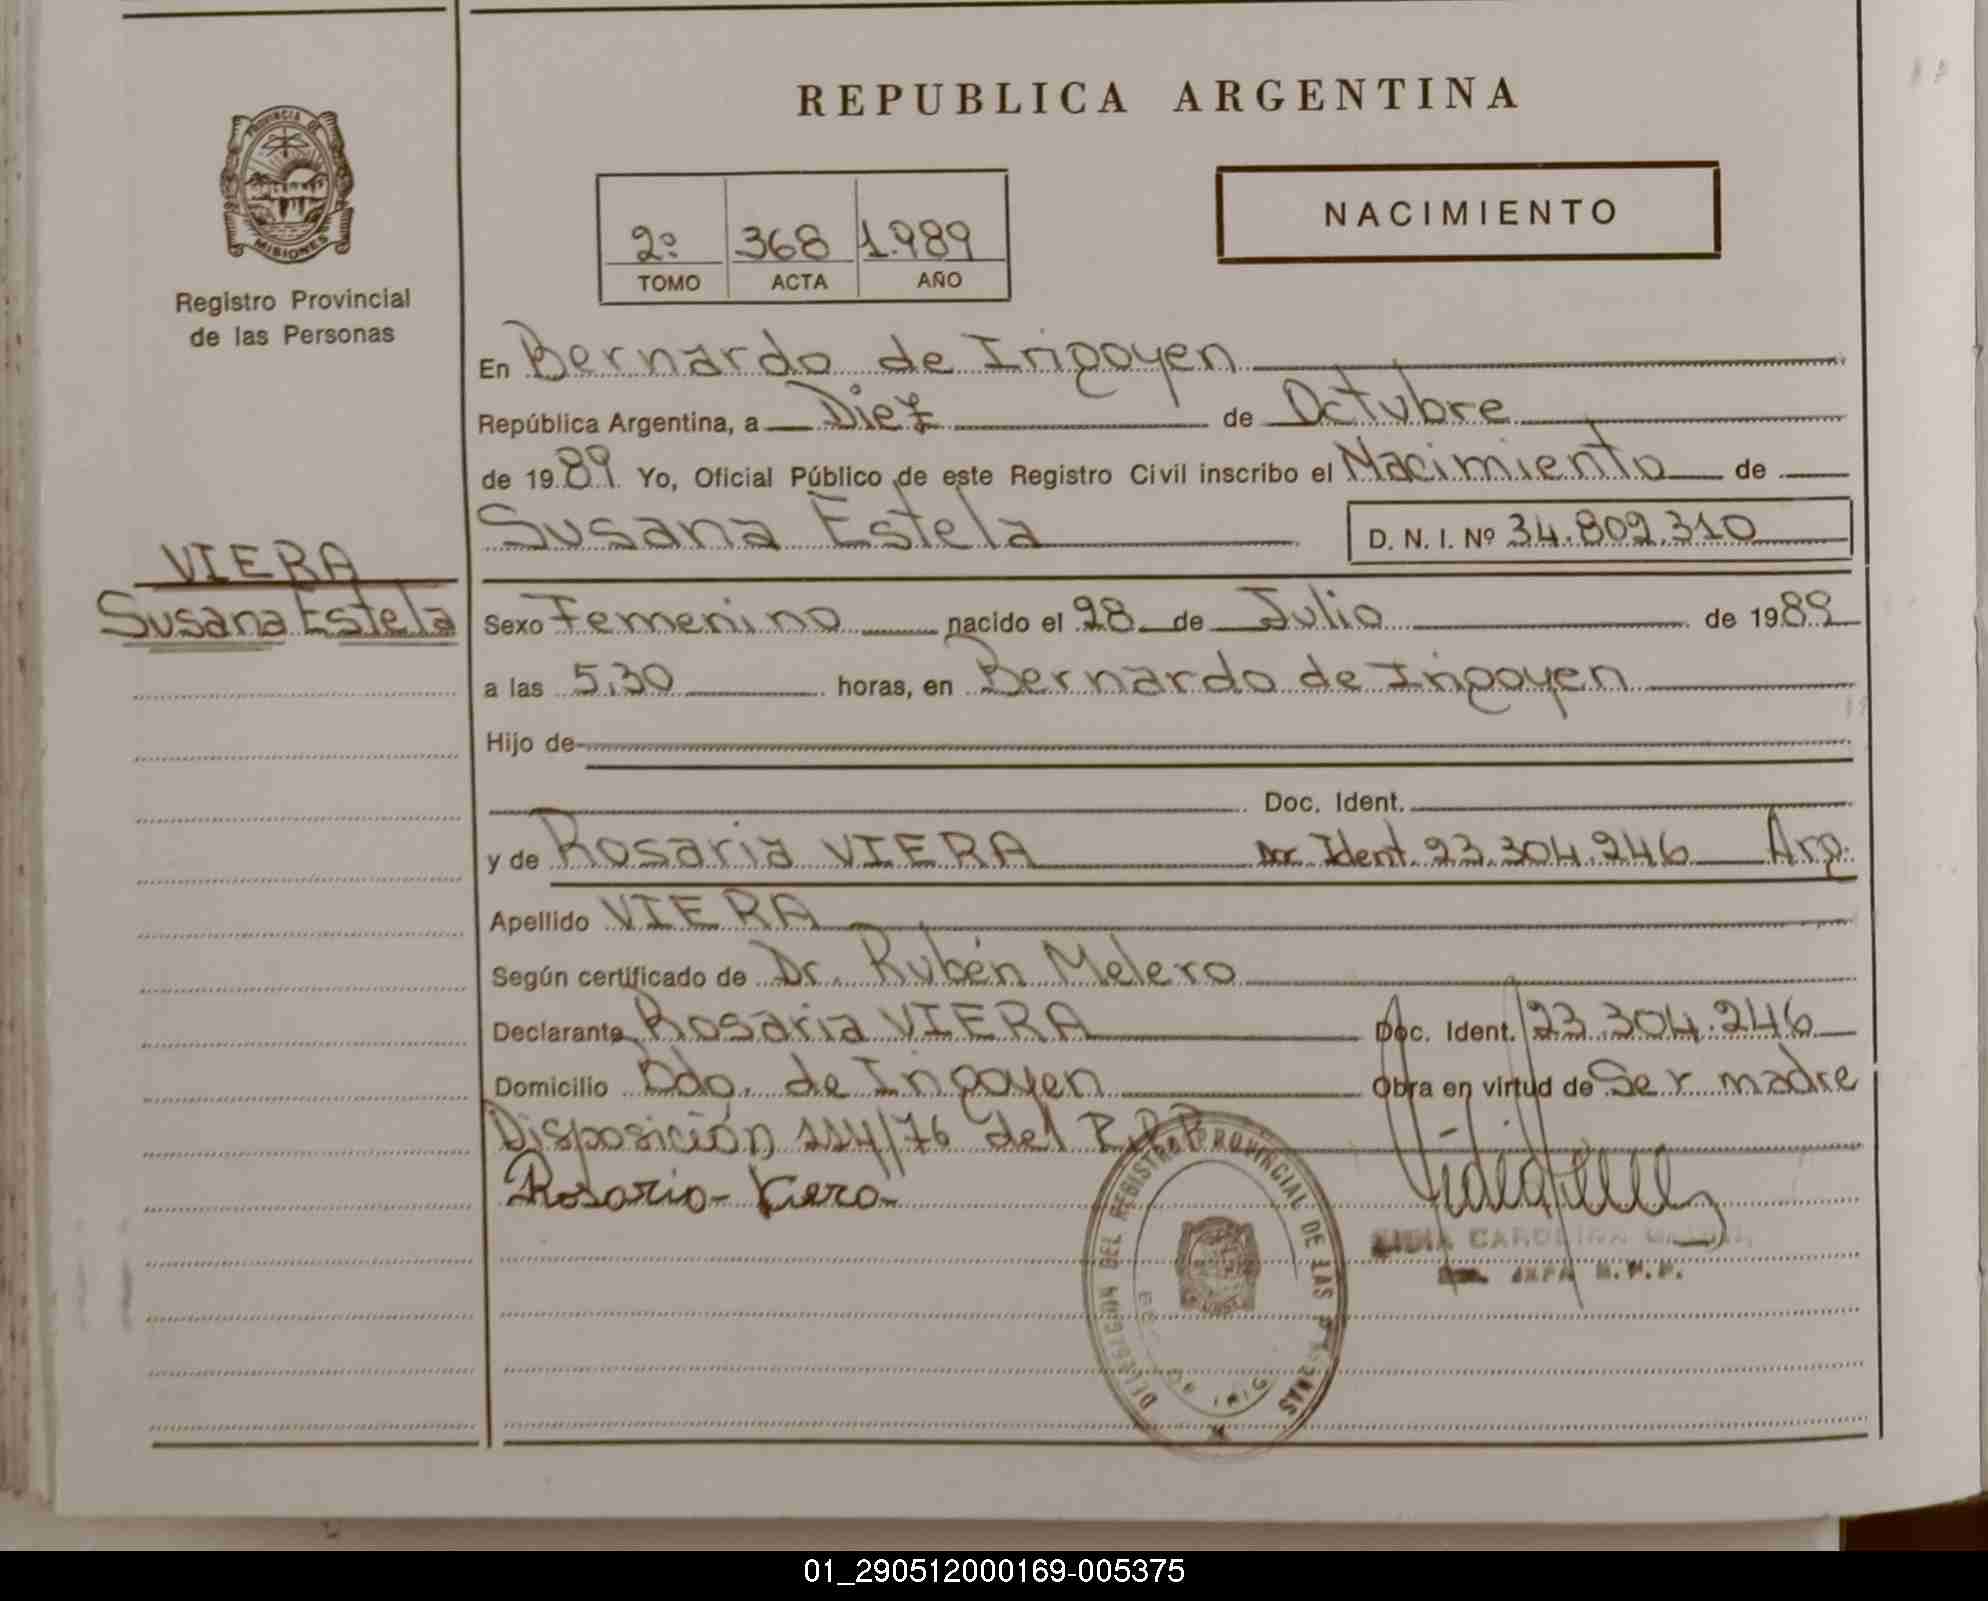 REPUBLICA ARGENTINA
PROVINCIA DE
MISIONES
Registro Provincial
de las Personas
2º 368 1.989
TOMO ACTA AÑO
NACIMIENTO
En Bernardo de Irigoyen
República Argentina, a Diez de Octubre
de 1989 Yo, Oficial Público de este Registro Civil inscribo el Nacimiento de
Susana Estela D. N. I. Nº 34.802.310
VIERA
Susana Estela
Sexo Femenino nacido el 28 de Julio de 1989
a las 5,30 horas, en Bernardo de Irigoyen
Hijo de
Doc. Ident.
y de Rosaria VIERA Doc Ident. 23.304.246 Arg.
Apellido VIERA
Según certificado de Dr. Rubén Melero
Declarante Rosaria VIERA Doc. Ident. 23.304.246
Domicilio Bdo. de Irigoyen Obra en virtud de Ser madre
Disposición 114/76 del R.P.P
Rosario - Viera -
DELEGACION DEL REGISTRO PROVINCIAL DE LAS PERSONAS
DE IRIG
CAROLINA
R.P.P.
01_290512000169-005375